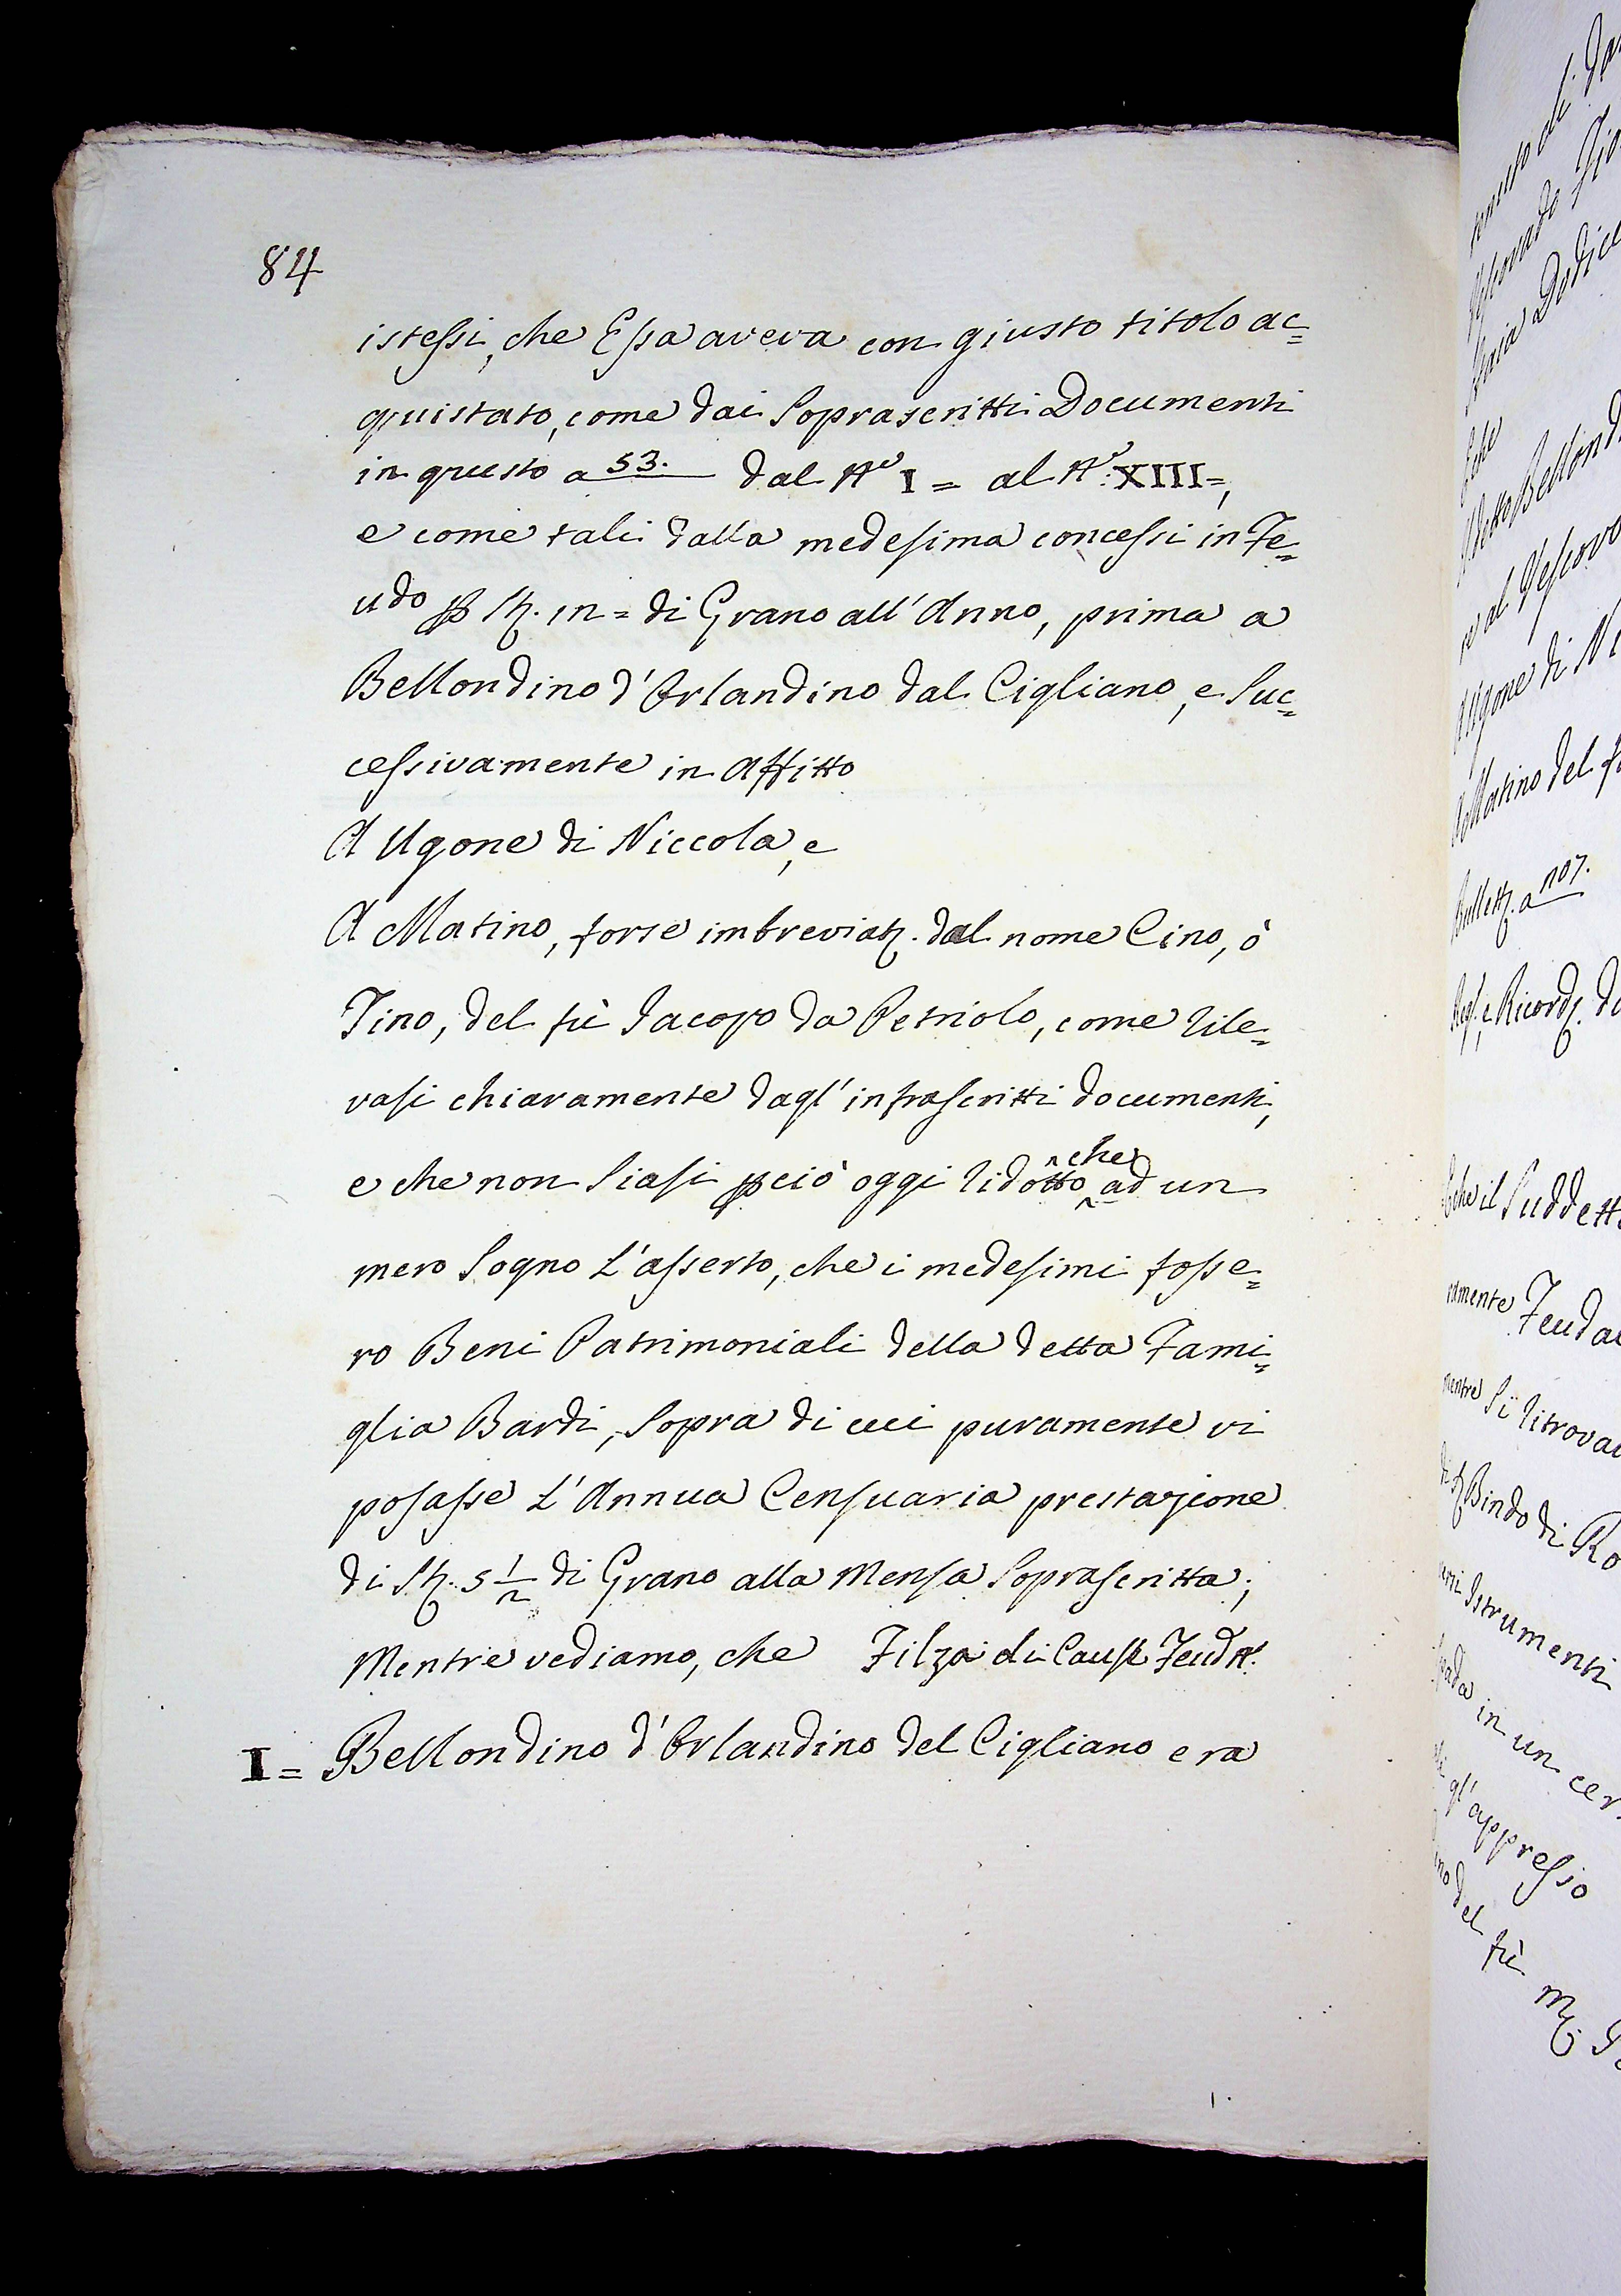 84
istessi, che Essa aveva con giusto titolo ac=
quistato, come dai Soprascritti Documenti
in questo a 53. dal N.º I = al N.º XIII=,
e come tali dalla medesima concessi in Fe=
udo di Grano all'Anno, prima a
Bellondino d'Orlandino dal Cigliano, e Suc=
cessivamente in Affitto
A Ugone di Niccola, e
A Matino, forse imbreviaz. dal nome Cino, ò
Tino, del fù Jacopo da Petriolo, come rile=
vasi chiaramente dagl'infrascritti documenti,
e che non Siasi pciò oggi ridotto che ad un
mero Sogno L'asserto, che i medesimi fosse=
ro Beni Patrimoniali della detta Fami=
glia Bardi, Sopra di cui puramente vi
posasse L'Annua Censuaria prestazione
di St. 5 1/2 di Grano alla Mensa Soprascritta;
Mentre vediamo, che Filza di Caus. Feud.
I = Bellondino d'Orlandino del Cigliano era
Dodice
detto Bellond
re al Vescovo
A Ugone di Ni
A Matino del f
Bullett. a
e Ricord. d
che il Suddett
ramente Feuda
mentre Si ritrova
Bindo di Ro
Istrumenti
in un cer
gl'appresso
del fù